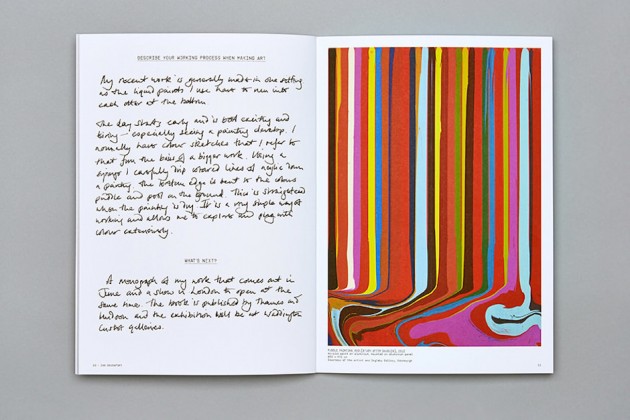 DESCRIBE YOUR WORKING PROCESS WHEN MAKING ART
My recent work is generally made in one sitting
as the liquid paints I use have to run into
each other at the bottom
The day starts early and is both exciting and
tiring – especially seeing a painting develop. I
normally have colour sketches that I refer to
that form the basis of a bigger work. Using a
syringe I carefully drip coloured lines of acrylic down
a painting. The bottom edge is bent so the colours
puddle and pool on the ground. This is straightened
when the painting is dry. It is a very simple way of
working and allows me to explore and play with
colour extensively.
WHAT'S NEXT?
A monograph of my work that comes out in
June and a show in London to open at the
same time. The book is published by Thames and
Hudson and the exhibition will be at Waddington
Custot galleries.